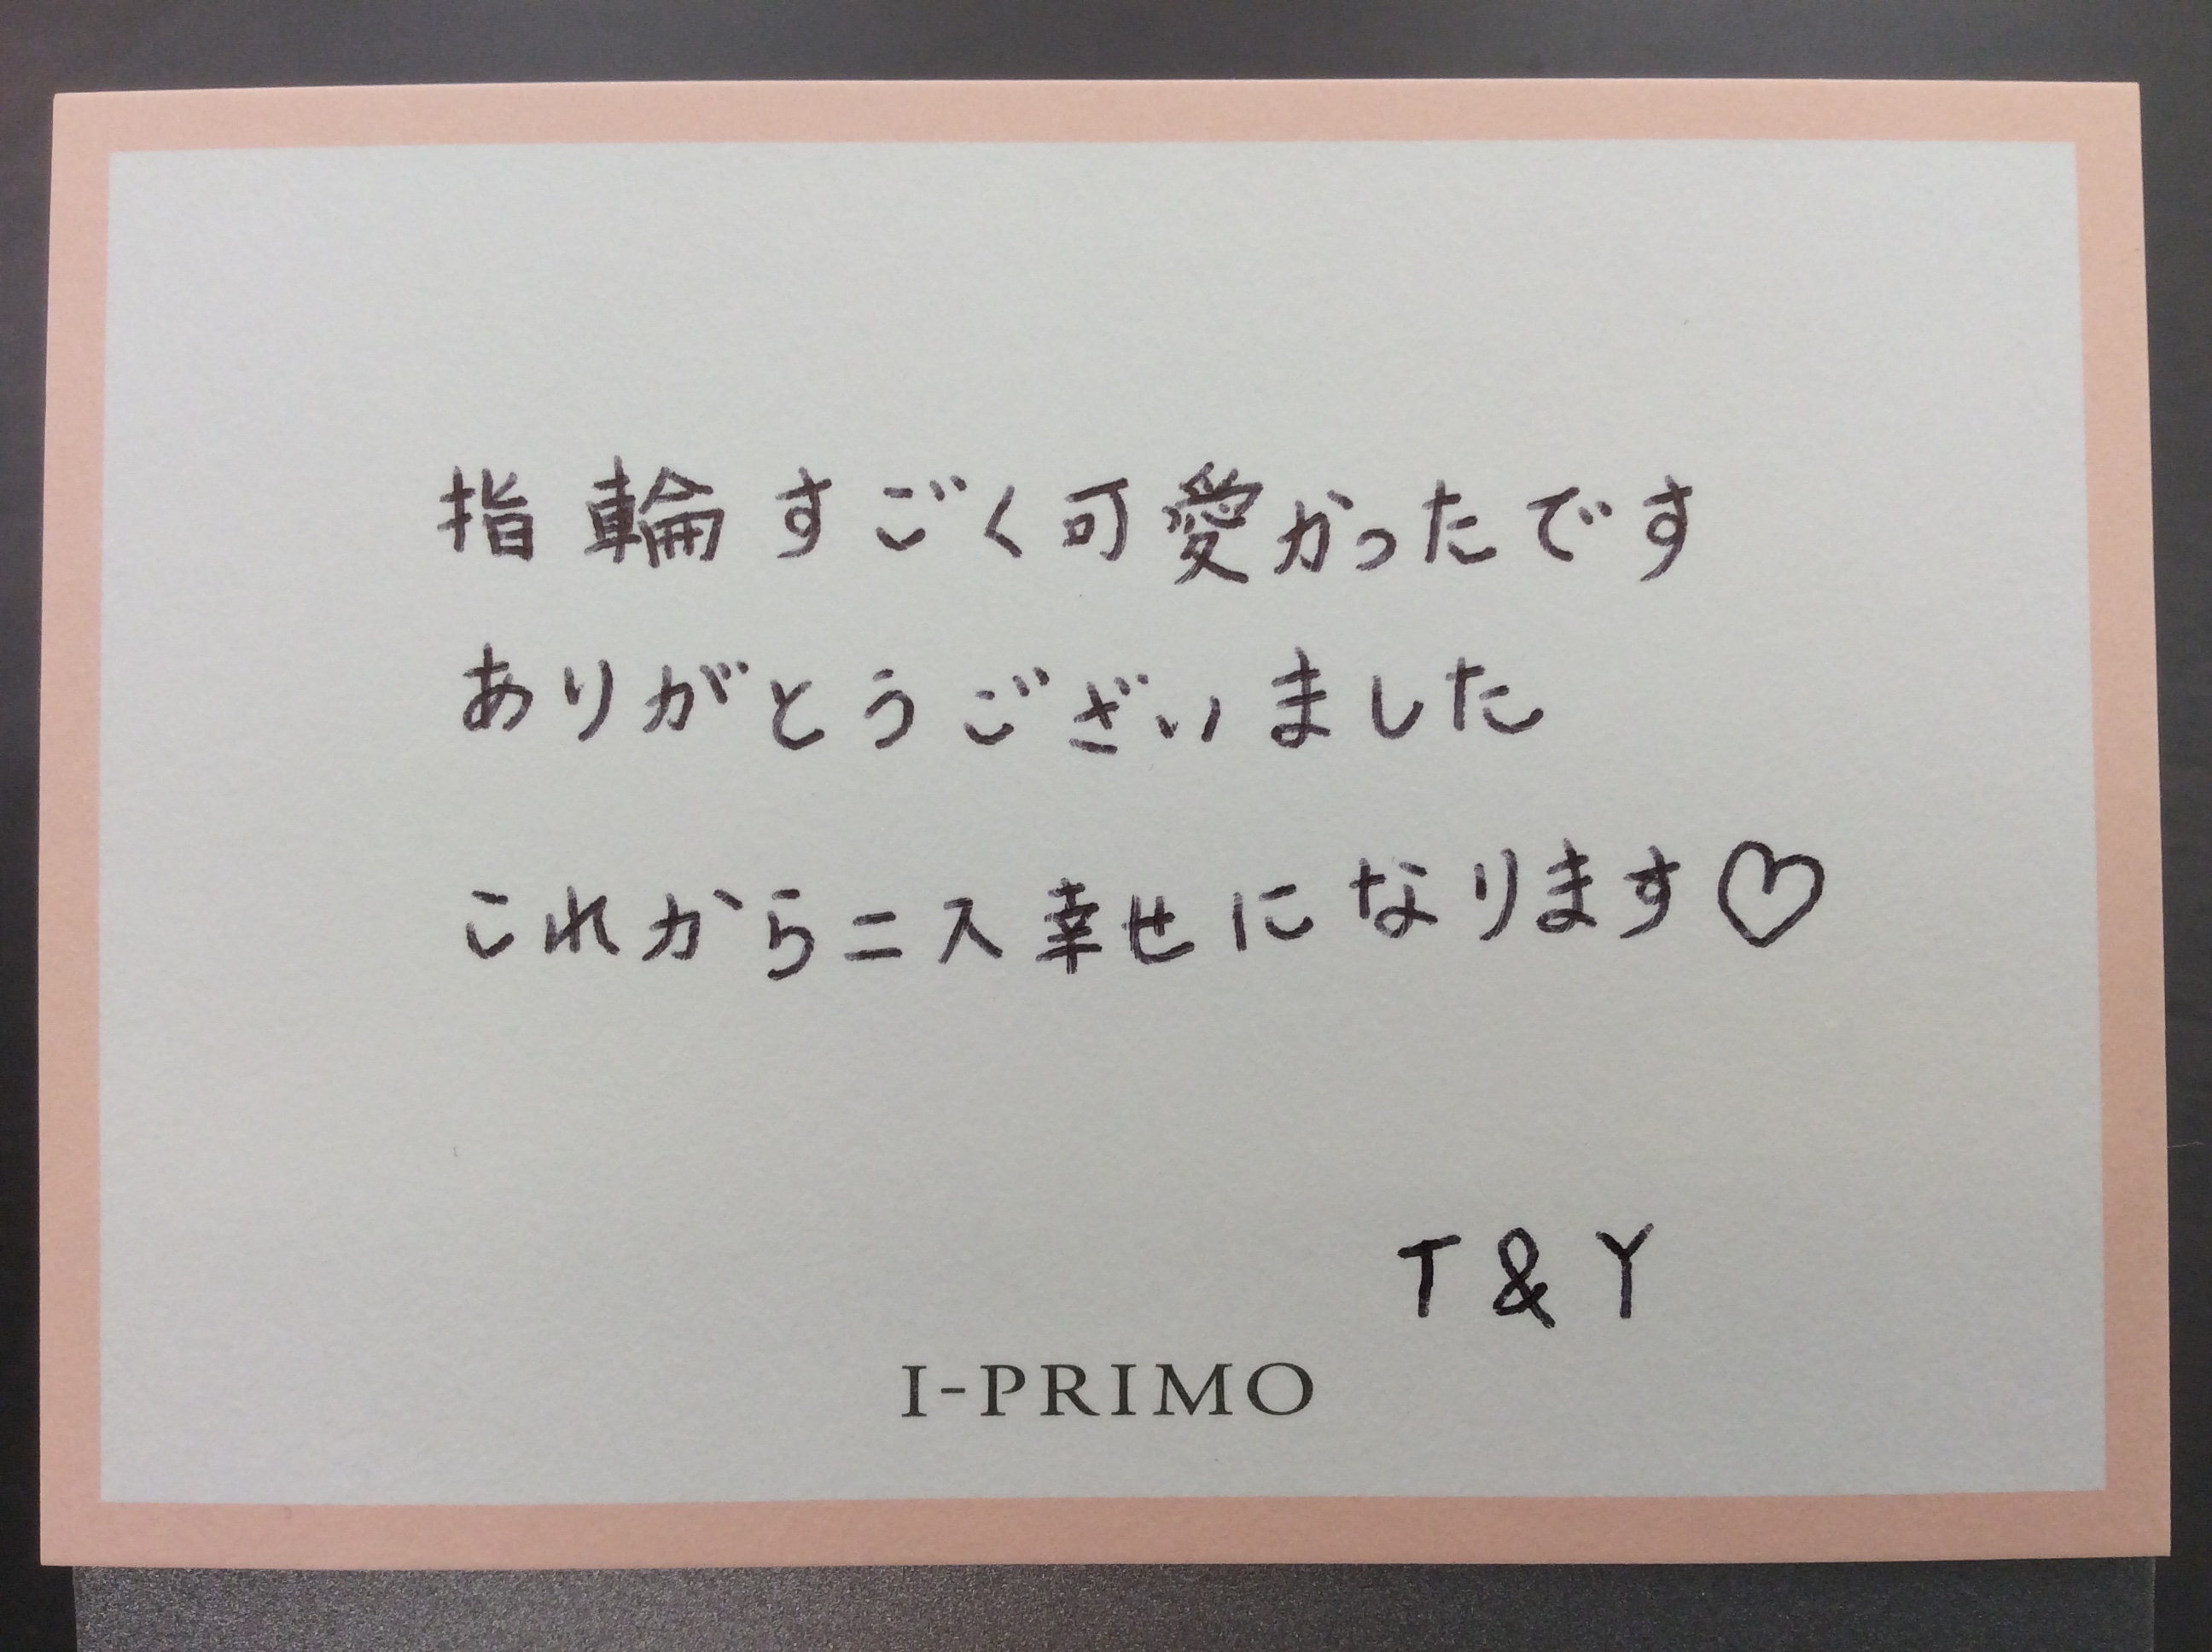 指輪すごく可愛かったです
ありがとうございました
これから二人幸せになります♡
T & Y
I-PRIMO